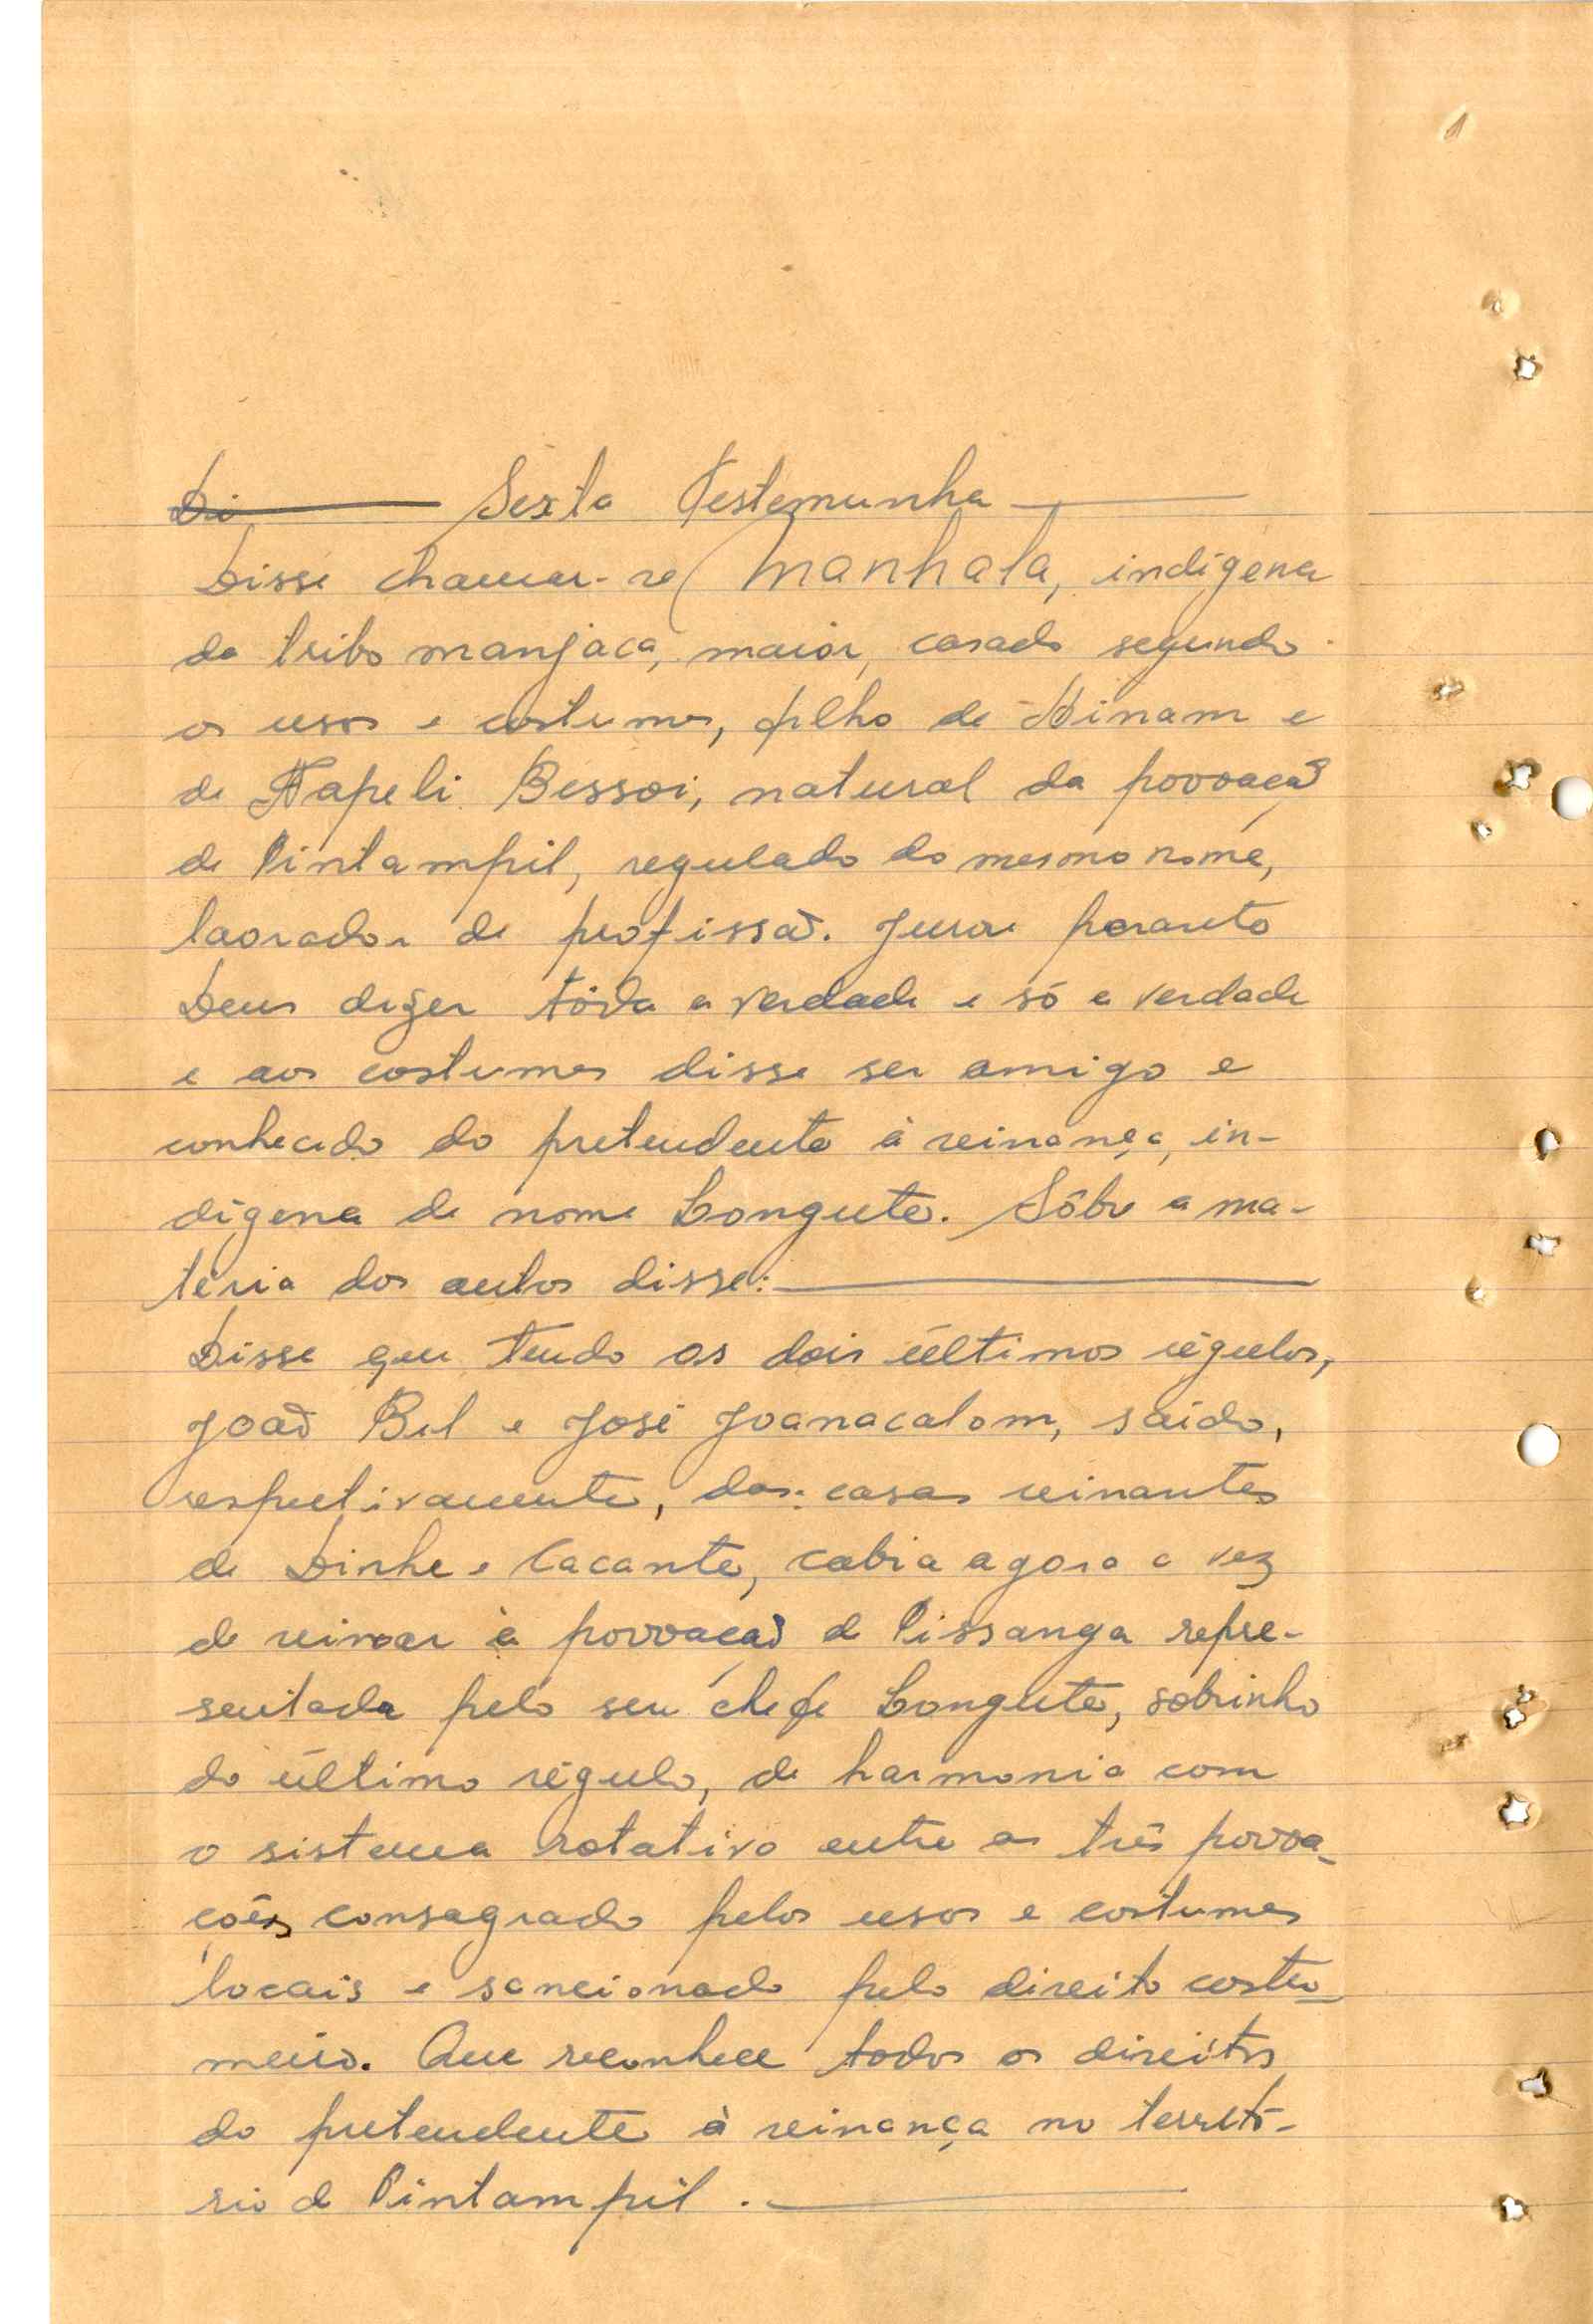 Di——— Sexta Testemunha ———
Disse chamar-se Manhala, indígena
da tribo manjaca, maior, casado segundo
os usos e costumes, filho de Hinam e
de Napeli Bessoi, natural da povoação
de Pintampil, regulado do mesmo nome,
lavrador de profissão. Jurou perante
Deus dizer tôda a verdade e só a verdade
e aos costumes disse ser amigo e
conhecido do pretendente à reinança, in-
dígena de nome Longute. Sôbre a ma-
téria dos autos disse: ———
Disse que tendo os dois últimos régulos,
João Bel e José Joanacalom, saído,
respectivamente, das casas reinantes
de Dinhe e Cacante, cabia agora a vez
de reinar à povoação de Pissanga repre-
sentada pelo seu chefe Longute, sobrinho
do último régulo, de harmonia com
o sistema rotativo entre as três povoa-
ções consagrado pelos usos e costumes
locais e sancionado pelo direito costu-
meiro. Que reconhece todos os direitos
do pretendente à reinança no territó-
rio de Pintampil. ———